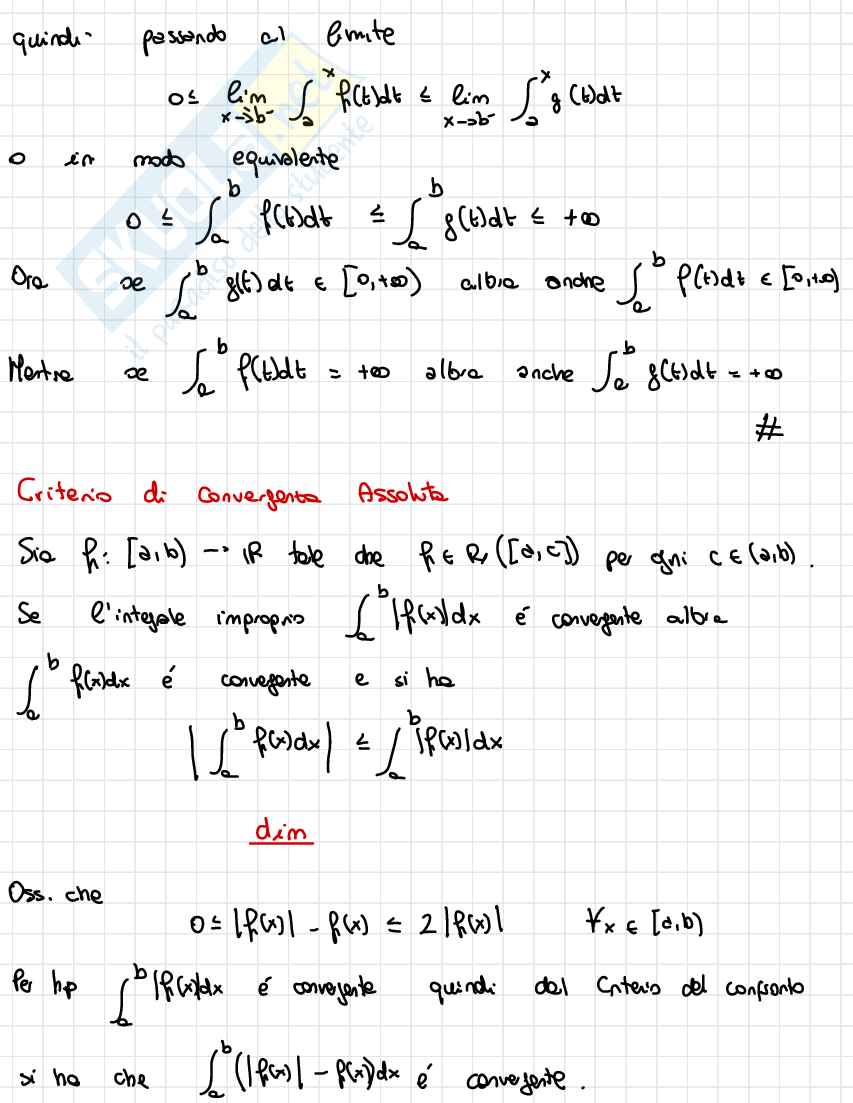 quindi passando al limite
0 ≤ lim x→b⁻ ∫_a^x f(t)dt ≤ lim x→b⁻ ∫_a^x g(t)dt
o in modo equivalente
0 ≤ ∫_a^b f(t)dt ≤ ∫_a^b g(t)dt ≤ +∞
Ora se ∫_a^b g(t)dt ∈ [0,+∞) allora anche ∫_a^b f(t)dt ∈ [0,+∞)
Mentre se ∫_a^b f(t)dt = +∞ allora anche ∫_a^b g(t)dt = +∞
#
Criterio di Convergenza Assoluta
Sia f: [a,b) → ℝ tale che f ∈ R([a,c]) per ogni c ∈ (a,b).
Se l'integrale improprio ∫_a^b |f(x)|dx é convergente allora
∫_a^b f(x)dx é convergente e si ha
|∫_a^b f(x)dx| ≤ ∫_a^b |f(x)|dx
dim
Oss. che
0 ≤ |f(x)| - f(x) ≤ 2|f(x)| ∀x ∈ [a,b)
Per hp ∫_a^b |f(x)|dx é convergente quindi dal Criterio del confronto
si ha che ∫_a^b (|f(x)| - f(x))dx é convergente.
SKUOLA.net
il paradiso dello studente